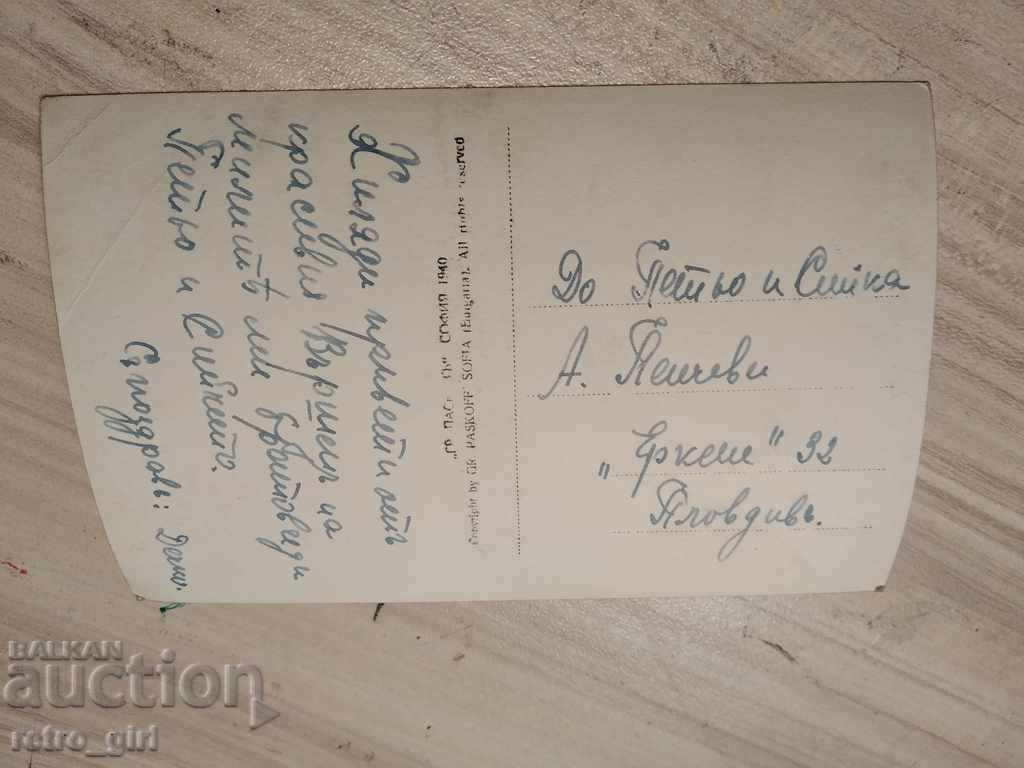 Хиляди привети отъ
красивия Вършец на
милитѣ ми братовчеди
Петьо и Сийкето.
Съ поздравъ:
СОФИЯ 1940
Copyright by GR. PASKOFF SOFIA (Bulgaria) All rights reserved
До Петьо и Сийка
А. Пенчеви
„Еркеш" 32
Пловдивъ.
BALKAN
auction
retro_girl